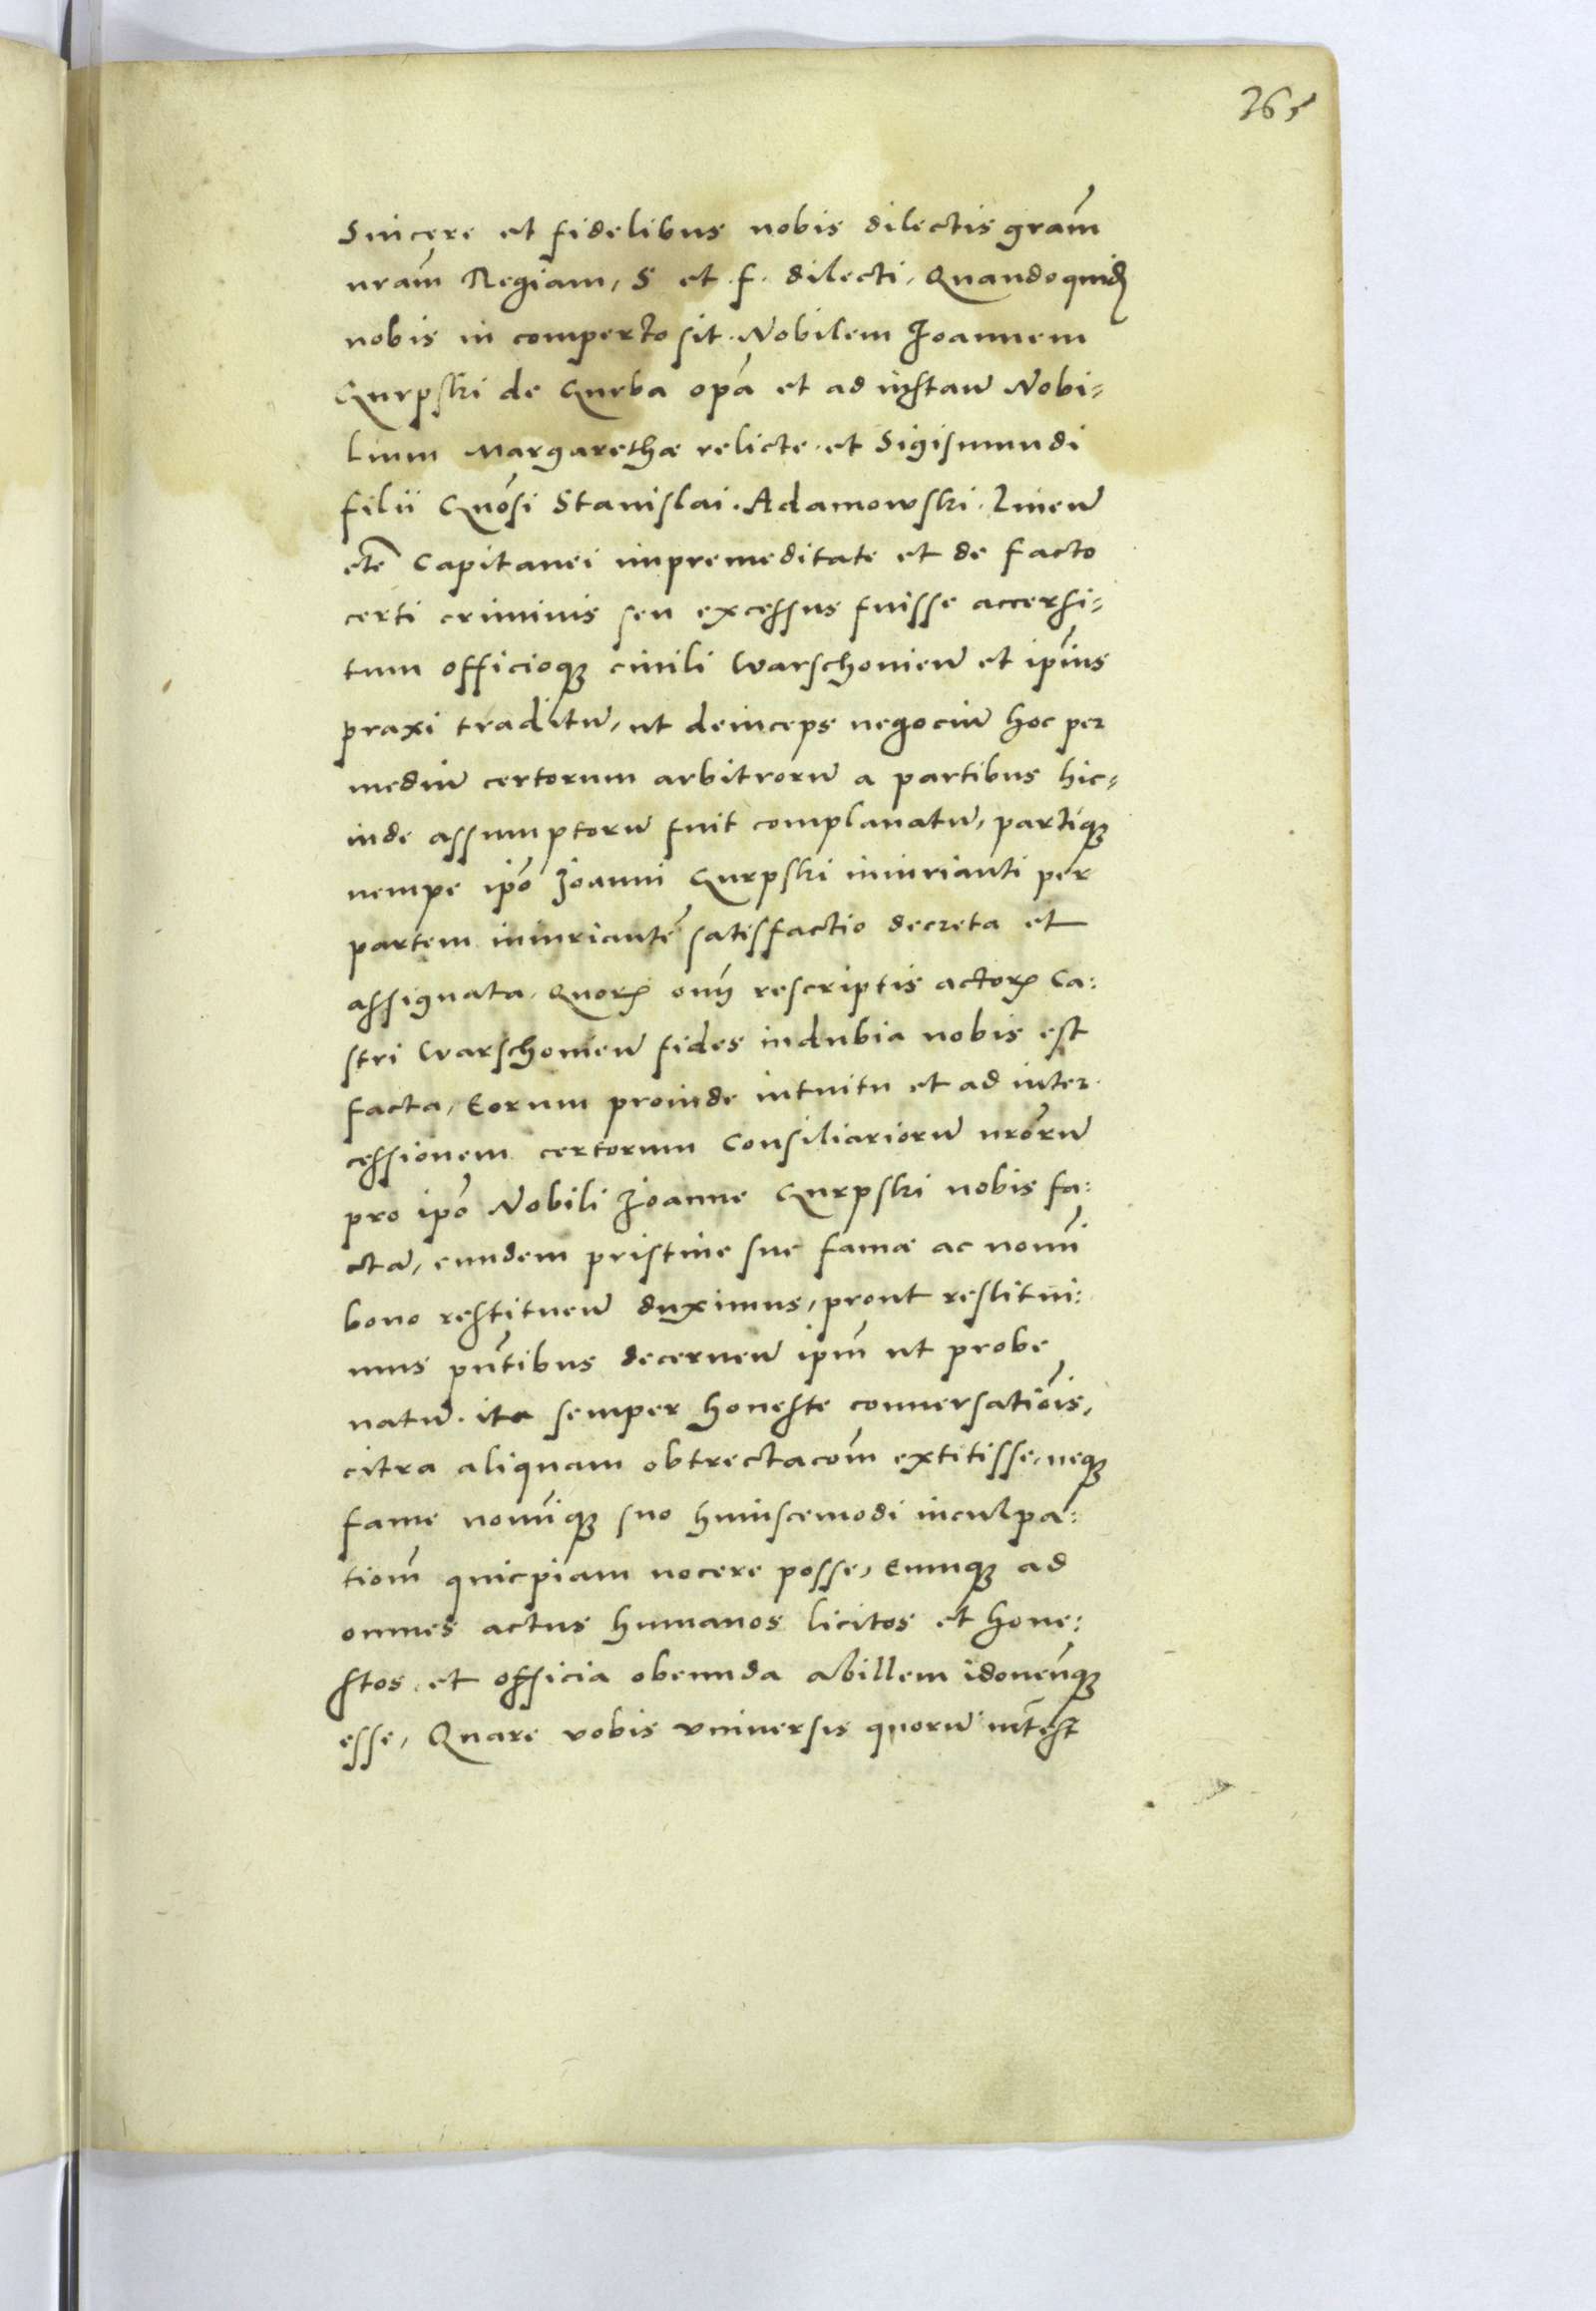 265
Sincere et fidelibus nobis dilectis gram̃
nram̃ Regiam, S et f. dilecti, Quandoquid̃
nobis in comperto sit. Nobilem Joannem
Gurpski de Gurba opã et ad instan̄ Nobi-
lium Margarethæ relicte et Sigismundi
filii Gnõsi Stanislai. Adamowski. Livien̄
etc̃ Capitanei impremeditate et de facto
certi criminis seu excessus fuisse accersi-
tum officioq; civili Warschovien̄ et ipĩus
praxi traditū, ut deinceps negociū hoc per
mediū certorum arbitrorū a partibus hic-
inde assumptorū fuit complanatū, partiq;
nempe ipõ Joanni Gurpski iniurianti per
partem iniuriantẽ satisfactio decreta et
assignata, Quorꝝ om̃ rescriptis actorꝝ Ca:
stri Warschovien̄ fides indubia nobis est
facta, Eorum proinde intuitu et ad inter
cessionem certorum Consiliariorū nrõrū
pro ipõ Nobili Joanne Gurpski nobis fa:
ctã, eundem pristine sue famæ ac nomĩ
bono restituen̄ duximus, prout restitui:
mus pñtibus decernen̄ ipm̃ ut probe
natū. ita semper honeste conversatiõis,
citra aliquam obtrectacom̃ extitisse, neq;
fame nomĩq; suo huiuscemodi inculpa:
tiom̃ quicpiam nocere posse, Eumq; ad
omnes actus humanos licitos et hone:
stos, et officia obeunda abillem idoneũq;
esse, Quare vobis vniversis quorū int̃est